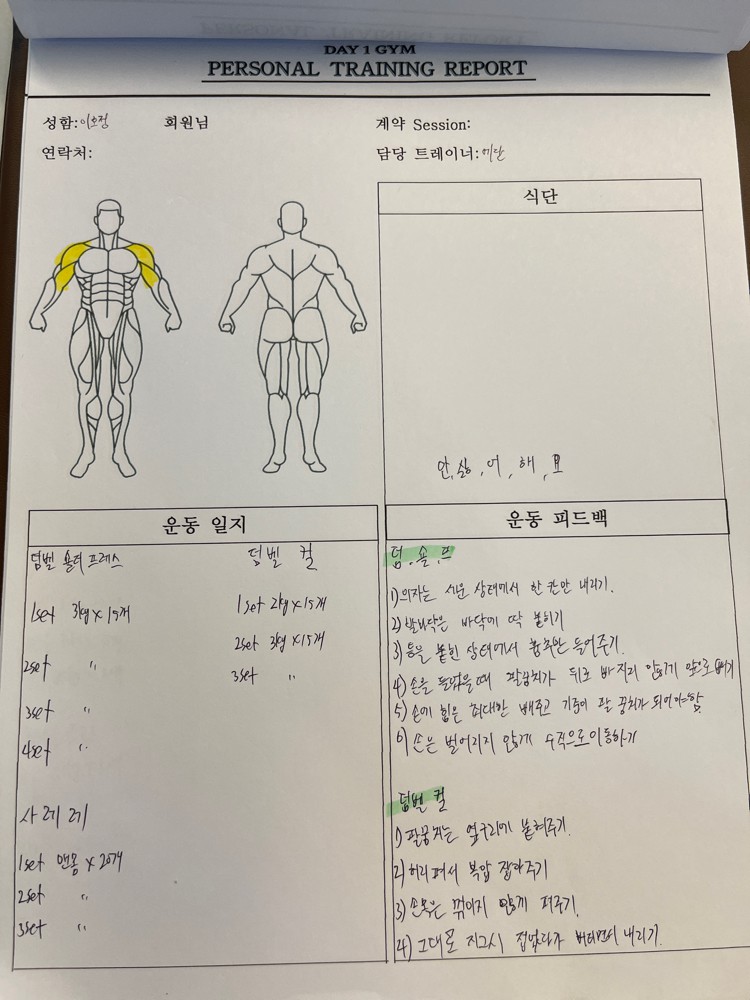 DAY 1 GYM
PERSONAL TRAINING REPORT
성함:이호정 회원님
계약 Session:
연락처:
담당 트레이너:에단
식단
안, 싫, 어, 해, 요
운동 일지
덤벨 숄더 프레스
1set 3kg x 15개
2set "
3set "
4set "
덤벨 컬
1set 2kg x 15개
2set 3kg x 15개
3set "
사레레
1set 맨몸 x 20개
2set "
3set "
운동 피드백
덤.숄.프
1) 의자는 세운 상태에서 한 칸만 내리기.
2) 발바닥은 바닥에 딱 붙히기
3) 등을 붙힌 상태에서 흉추만 들어주기.
4) 손을 들었을때 팔꿈치가 뒤로 빠지지 않게 앞으로 빼기
5) 손에 힘은 최대한 빼주고 기준이 팔꿈치가 되어야함.
6) 손은 벌어지지 않게 수직으로 이동하기
덤벨 컬
1) 팔꿈치는 옆구리에 붙혀주기.
2) 허리 펴서 복압 잡아주기
3) 손목은 꺾이지 않게 펴주기.
4) 그대로 지그시 접었다가 버티면서 내리기.